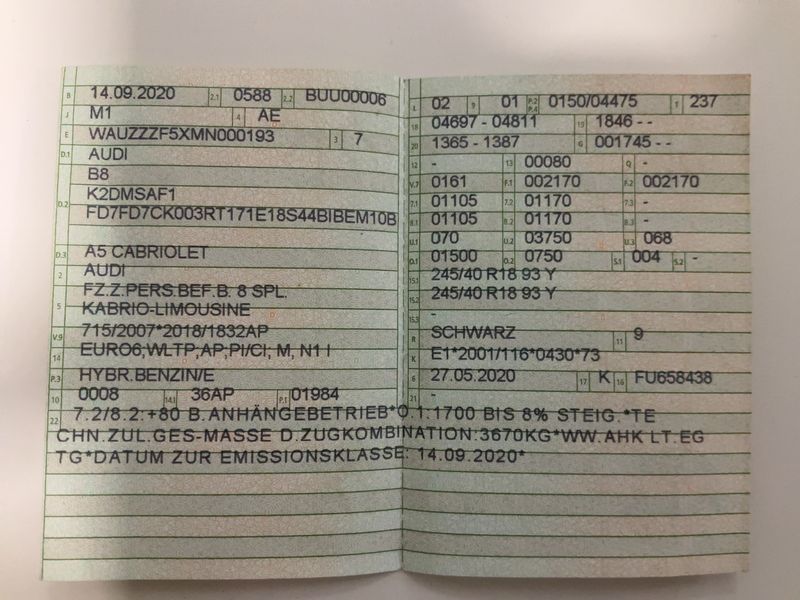 B 14.09.2020 2.1 0588 2.2 BUU00006
J M1 4 AE
E WAUZZZF5XMN000193 3 7
D.1 AUDI
B8
D.2 K2DMSAF1
FD7FD7CK003RT171E18S44BIBEM10B
D.3 A5 CABRIOLET
2 AUDI
5 FZ.Z.PERS.BEF.B. 8 SPL.
KABRIO-LIMOUSINE
V.9 715/2007*2018/1832AP
14 EURO6;WLTP;AP;PI/CI; M, N1 I
P.3 HYBR.BENZIN/E
10 0008 14.1 36AP P.1 01984
L 02 9 01 P.2 P.4 0150/04475 T 237
18 04697 - 04811 19 1846 - -
20 1365 - 1387 G 001745 - -
12 - 13 00080 Q -
V.7 0161 F.1 002170 F.2 002170
7.1 01105 7.2 01170 7.3 -
8.1 01105 8.2 01170 8.3 -
U.1 070 U.2 03750 U.3 068
O.1 01500 O.2 0750 S.1 004 S.2 -
15.1 245/40 R18 93 Y
15.2 245/40 R18 93 Y
15.3 -
R SCHWARZ 11 9
K E1*2001/116*0430*73
6 27.05.2020 17 K 16 FU658438
21 -
22 7.2/8.2:+80 B.ANHÄNGEBETRIEB*O.1:1700 BIS 8% STEIG.*TE
CHN.ZUL.GES-MASSE D.ZUGKOMBINATION:3670KG*WW.AHK LT.EG
TG*DATUM ZUR EMISSIONSKLASSE: 14.09.2020*